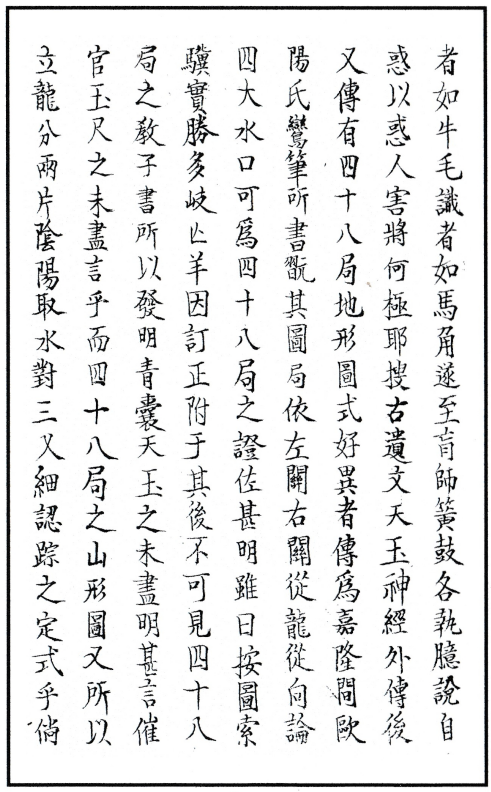 者如牛毛識者如馬角遂至盲師簧鼓各執臆說自
惑以惑人害將何極耶搜古遺文天玉神經外傳後
又傳有四十八局地形圖式好異者傳爲嘉隆間歐
陽氏鸞筆所書翫其圖局依左關右關從龍從向論
四大水口可爲四十八局之證佐甚明雖曰按圖索
驥實勝多岐亾羊因訂正附于其後不可見四十八
局之教子書所以發明青囊天玉之未盡明甚言催
官玉尺之未盡言乎而四十八局之山形圖又所以
立龍分兩片陰陽取水對三叉細認踪之定式乎倘